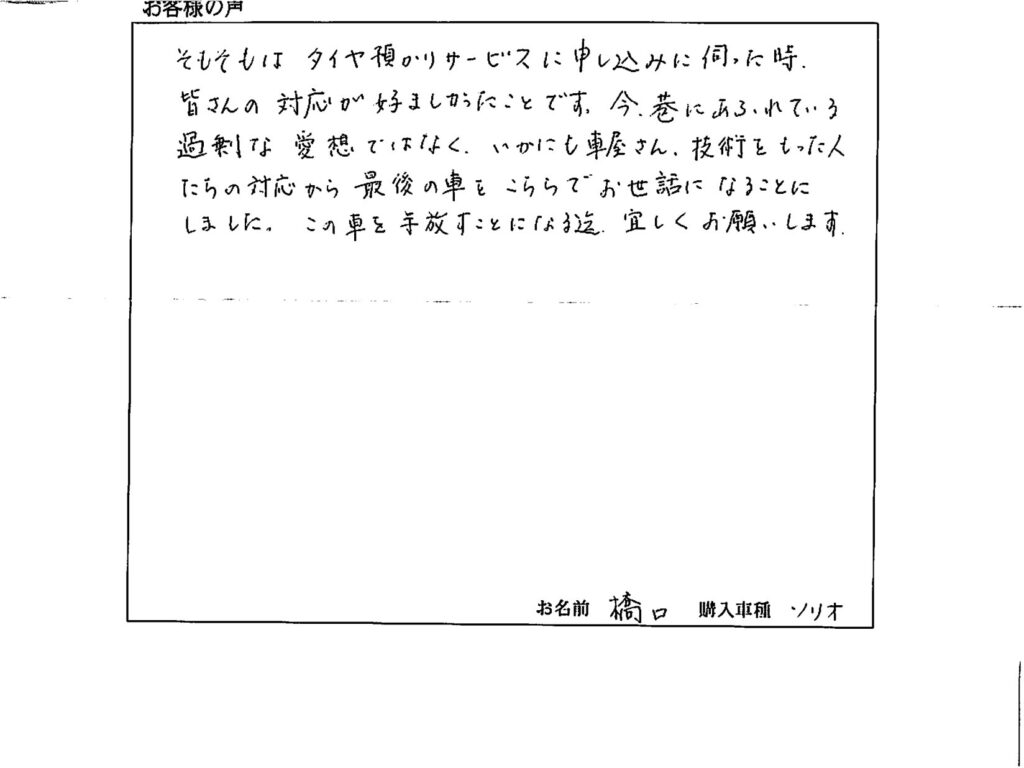 お客様の声
そもそもは タイヤ預かりサービスに申し込みに伺った時、
皆さんの対応が好ましかったことです。今、巷にあふれている
過剰な愛想ではなく、いかにも車屋さん、技術をもった人
たちの対応から最後の車をこちらでお世話になることに
しました。この車を手放すことになる迄、宜しくお願いします。
お名前 橋口 購入車種 ソリオ